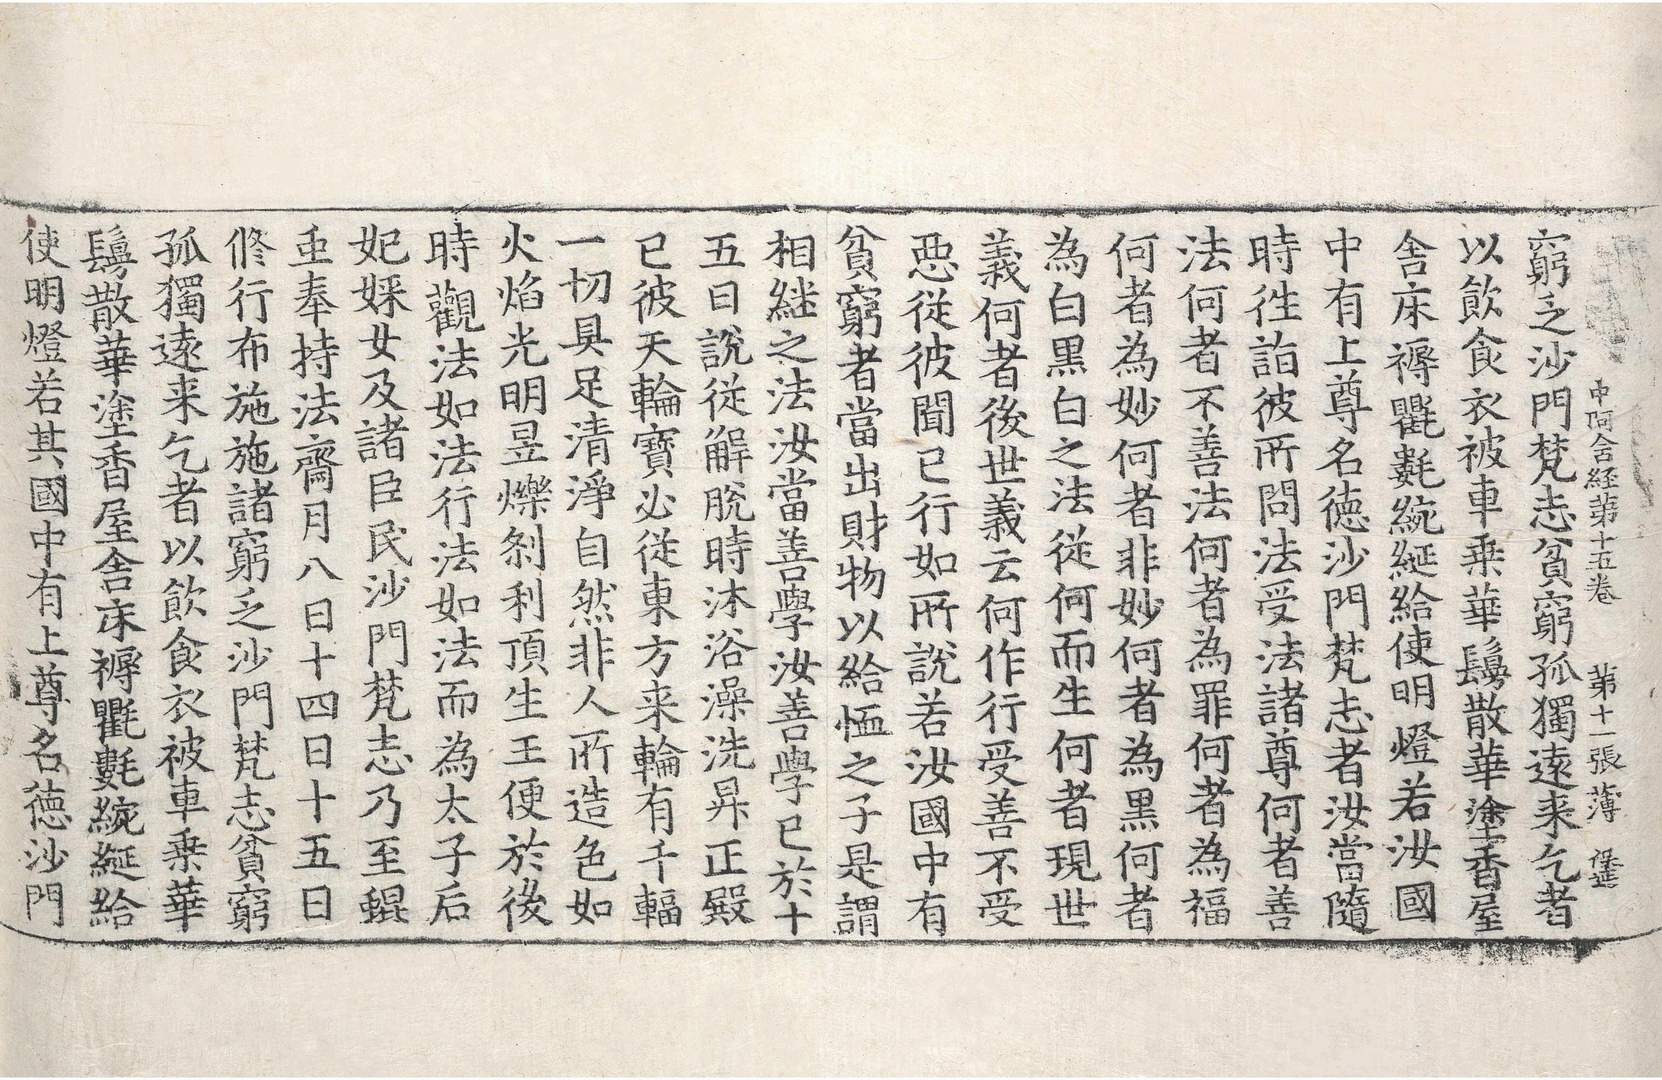 中阿含経第十五卷　第十一張　薄
窮乏沙門梵志貧窮孤獨遠来乞者
以飲食衣被車乗華鬘散華塗香屋
舎床褥氍氀綩綖給使明燈若汝國
中有上尊名徳沙門梵志者汝當隨
時徃詣彼所問法受法諸尊何者善
法何者不善法何者為罪何者為福
何者為妙何者非妙何者為黒何者
為白黒白之法從何而生何者現世
義何者後世義云何作行受善不受
惡從彼聞已行如所說若汝國中有
貧窮者當出財物以給恤之子是謂
相継之法汝當善學汝善學已於十
五日說從解脫時沐浴澡洗昇正殿
已彼天輪寶必從東方来輪有千輻
一切具足清淨自然非人所造色如
火焰光明昱爍刹利頂生王便於後
時觀法如法行法如法而為太子后
妃婇女及諸臣民沙門梵志乃至蜫
䖝奉持法齋月八日十四日十五日
修行布施施諸窮乏沙門梵志貧窮
孤獨遠来乞者以飲食衣被車乗華
鬘散華塗香屋舎床褥氍氀綩綖給
使明燈若其國中有上尊名徳沙門